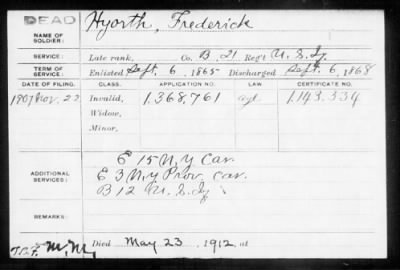 DEAD
NAME OF SOLDIER: Hyorth, Frederick
SERVICE: Late rank, Co. B. 21 Reg't U. S. Iy.
TERM OF SERVICE: Enlisted Sept. 6, 1865 Discharged Sept. 6, 1868
DATE OF FILING. CLASS. APPLICATION NO. LAW CERTIFICATE NO.
1907 Nov. 22 Invalid, 1.368,761 1.143.334
Widow,
Minor,
ADDITIONAL SERVICES:
E 15 N.Y Cav.
E 3 N.Y Prov. Cav.
B 12 U. S. Iy
REMARKS:
Died May 23, 1912, at